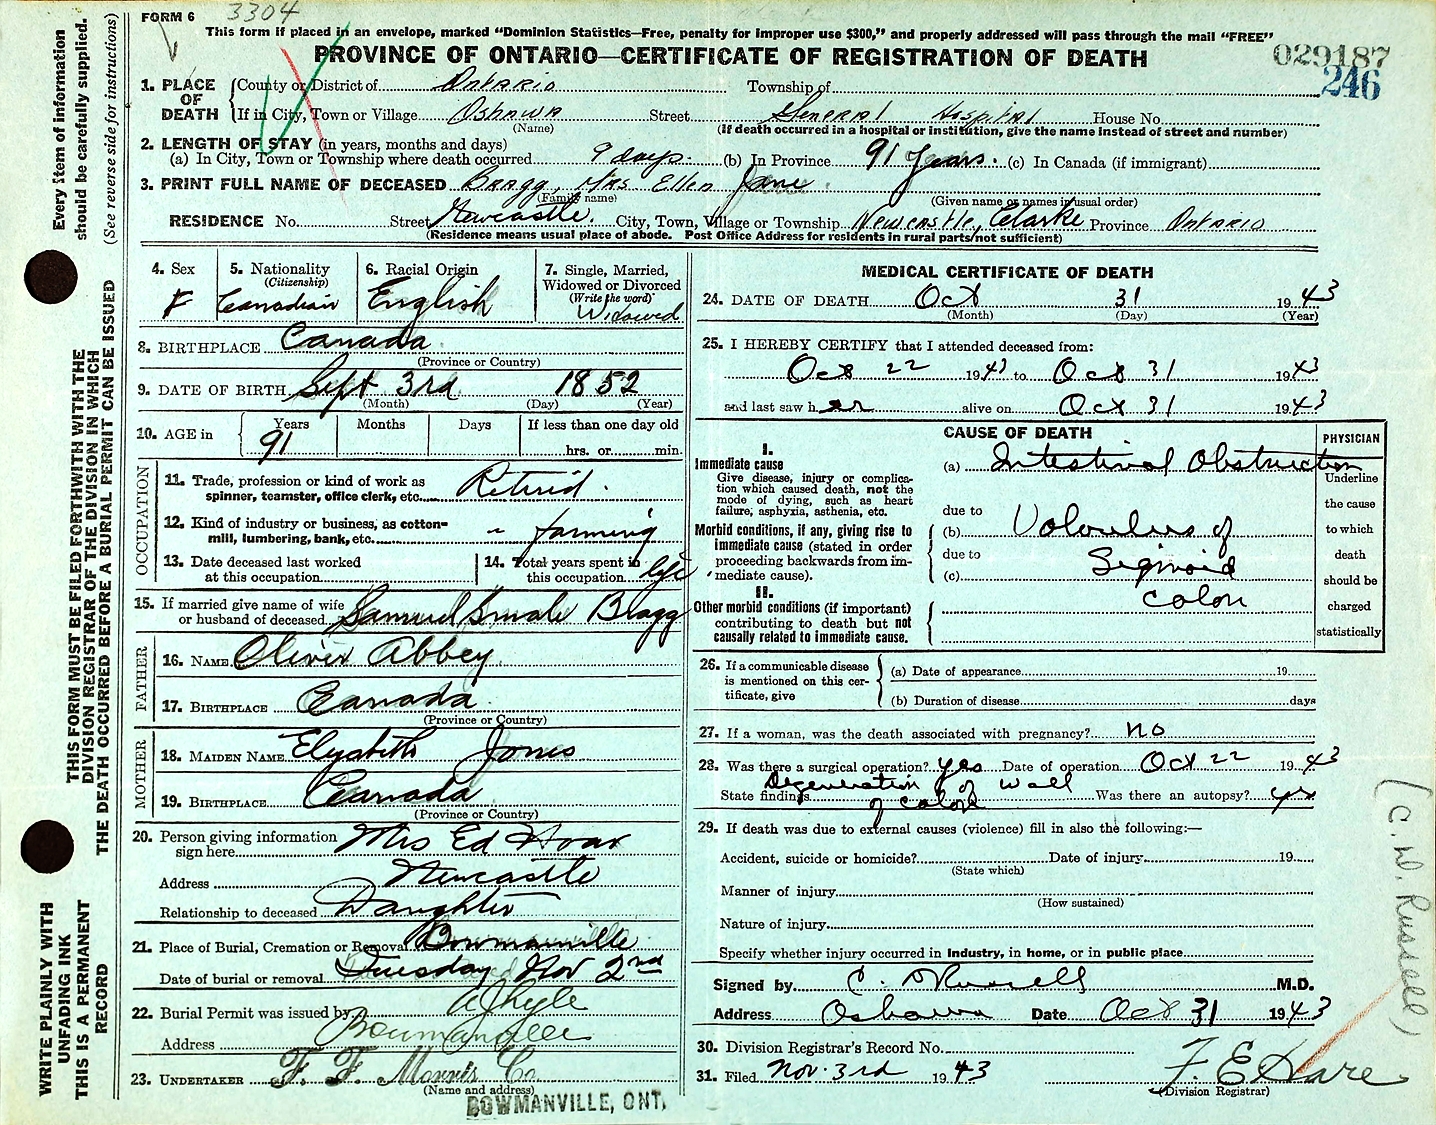 FORM 6 3304
This form if placed in an envelope, marked “Dominion Statistics—Free, penalty for improper use $300,” and properly addressed will pass through the mail “FREE”
PROVINCE OF ONTARIO—CERTIFICATE OF REGISTRATION OF DEATH
029187
246
1. PLACE OF DEATH
County or District of Ontario Township of
If in City, Town or Village Oshawa Street General Hospital House No.
(Name) (If death occurred in a hospital or institution, give the name instead of street and number)
2. LENGTH OF STAY (in years, months and days)
(a) In City, Town or Township where death occurred 9 days. (b) In Province 91 years. (c) In Canada (if immigrant)
3. PRINT FULL NAME OF DECEASED Bragg, Mrs Ellen Jane
(Family name) (Given name or names in usual order)
RESIDENCE No. Street Newcastle. City, Town, Village or Township Newcastle, Clarke Province Ontario
(Residence means usual place of abode. Post Office Address for residents in rural parts not sufficient)
4. Sex
F
5. Nationality
(Citizenship)
Canadian
6. Racial Origin
English
7. Single, Married,
Widowed or Divorced
(Write the word)
Widowed
8. BIRTHPLACE Canada
(Province or Country)
9. DATE OF BIRTH Sept 3rd 1852
(Month) (Day) (Year)
10. AGE in
Years Months Days If less than one day old
91 hrs. or min.
OCCUPATION
11. Trade, profession or kind of work as
spinner, teamster, office clerk, etc. Retired.
12. Kind of industry or business, as cotton-
mill, lumbering, bank, etc. " farming
13. Date deceased last worked
at this occupation
14. Total years spent in
this occupation life
15. If married give name of wife
or husband of deceased Samuel Smale Bragg
FATHER
16. NAME Oliver Abbey
17. BIRTHPLACE Canada
(Province or Country)
MOTHER
18. MAIDEN NAME Elizabeth Jones
19. BIRTHPLACE Canada
(Province or Country)
20. Person giving information
sign here Mrs Ed Hoar
Address Newcastle
Relationship to deceased Daughter
21. Place of Burial, Cremation or Removal Bowmanville
Date of burial or removal Tuesday Nov 2nd
22. Burial Permit was issued by
Address Bowmanville
23. UNDERTAKER F. F. Morris Co
(Name and address)
BOWMANVILLE, ONT.
MEDICAL CERTIFICATE OF DEATH
24. DATE OF DEATH Oct 31 1943
(Month) (Day) (Year)
25. I HEREBY CERTIFY that I attended deceased from:
Oct 22 1943 to Oct 31 1943
and last saw her alive on Oct 31 1943
CAUSE OF DEATH
I.
Immediate cause
Give disease, injury or complica-
tion which caused death, not the
mode of dying, such as heart
failure, asphyxia, asthenia, etc.
Morbid conditions, if any, giving rise to
immediate cause (stated in order
proceeding backwards from im-
mediate cause).
II.
Other morbid conditions (if important)
contributing to death but not
causally related to immediate cause.
(a) Intestinal Obstruction
due to
(b) Volvulus of
due to Sigmoid
(c) Colon
PHYSICIAN
Underline
the cause
to which
death
should be
charged
statistically
26. If a communicable disease
is mentioned on this cer-
tificate, give
(a) Date of appearance 19
(b) Duration of disease days
27. If a woman, was the death associated with pregnancy? no
28. Was there a surgical operation? yes Date of operation Oct 22 1943
State findings Degeneration of wall of colon Was there an autopsy? yes
29. If death was due to external causes (violence) fill in also the following:—
Accident, suicide or homicide? Date of injury 19
(State which)
Manner of injury
(How sustained)
Nature of injury
Specify whether injury occurred in industry, in home, or in public place
Signed by C. D Russell M.D.
Address Oshawa Date Oct 31 1943
30. Division Registrar's Record No.
31. Filed Nov. 3rd 1943 F. E. Hare
(Division Registrar)
(C. W. Russell)
Every item of information
should be carefully supplied.
(See reverse side for instructions)
THIS FORM MUST BE FILED FORTHWITH WITH THE
DIVISION REGISTRAR OF THE DIVISION IN WHICH
THE DEATH OCCURRED BEFORE A BURIAL PERMIT CAN BE ISSUED
WRITE PLAINLY WITH
UNFADING INK
THIS IS A PERMANENT
RECORD